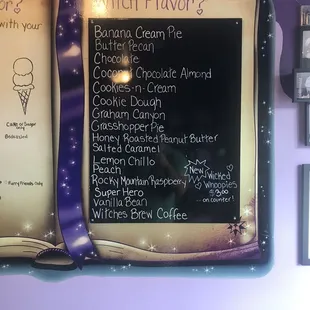 or?
with your
Cake or Sugar
only
Which Flavor?
Banana Cream Pie
Butter Pecan
Chocolate
Coconut Chocolate Almond
Cookies-n-Cream
Cookie Dough
Graham Canyon
Grasshopper Pie
Honey Roasted Peanut Butter
Salted Caramel
Lemon Chillo
Peach
Rocky Mountain Raspberry
Super Hero
Vanilla Bean
Witches Brew Coffee
New
Wicked
Whoopies
$3.00
on counter!